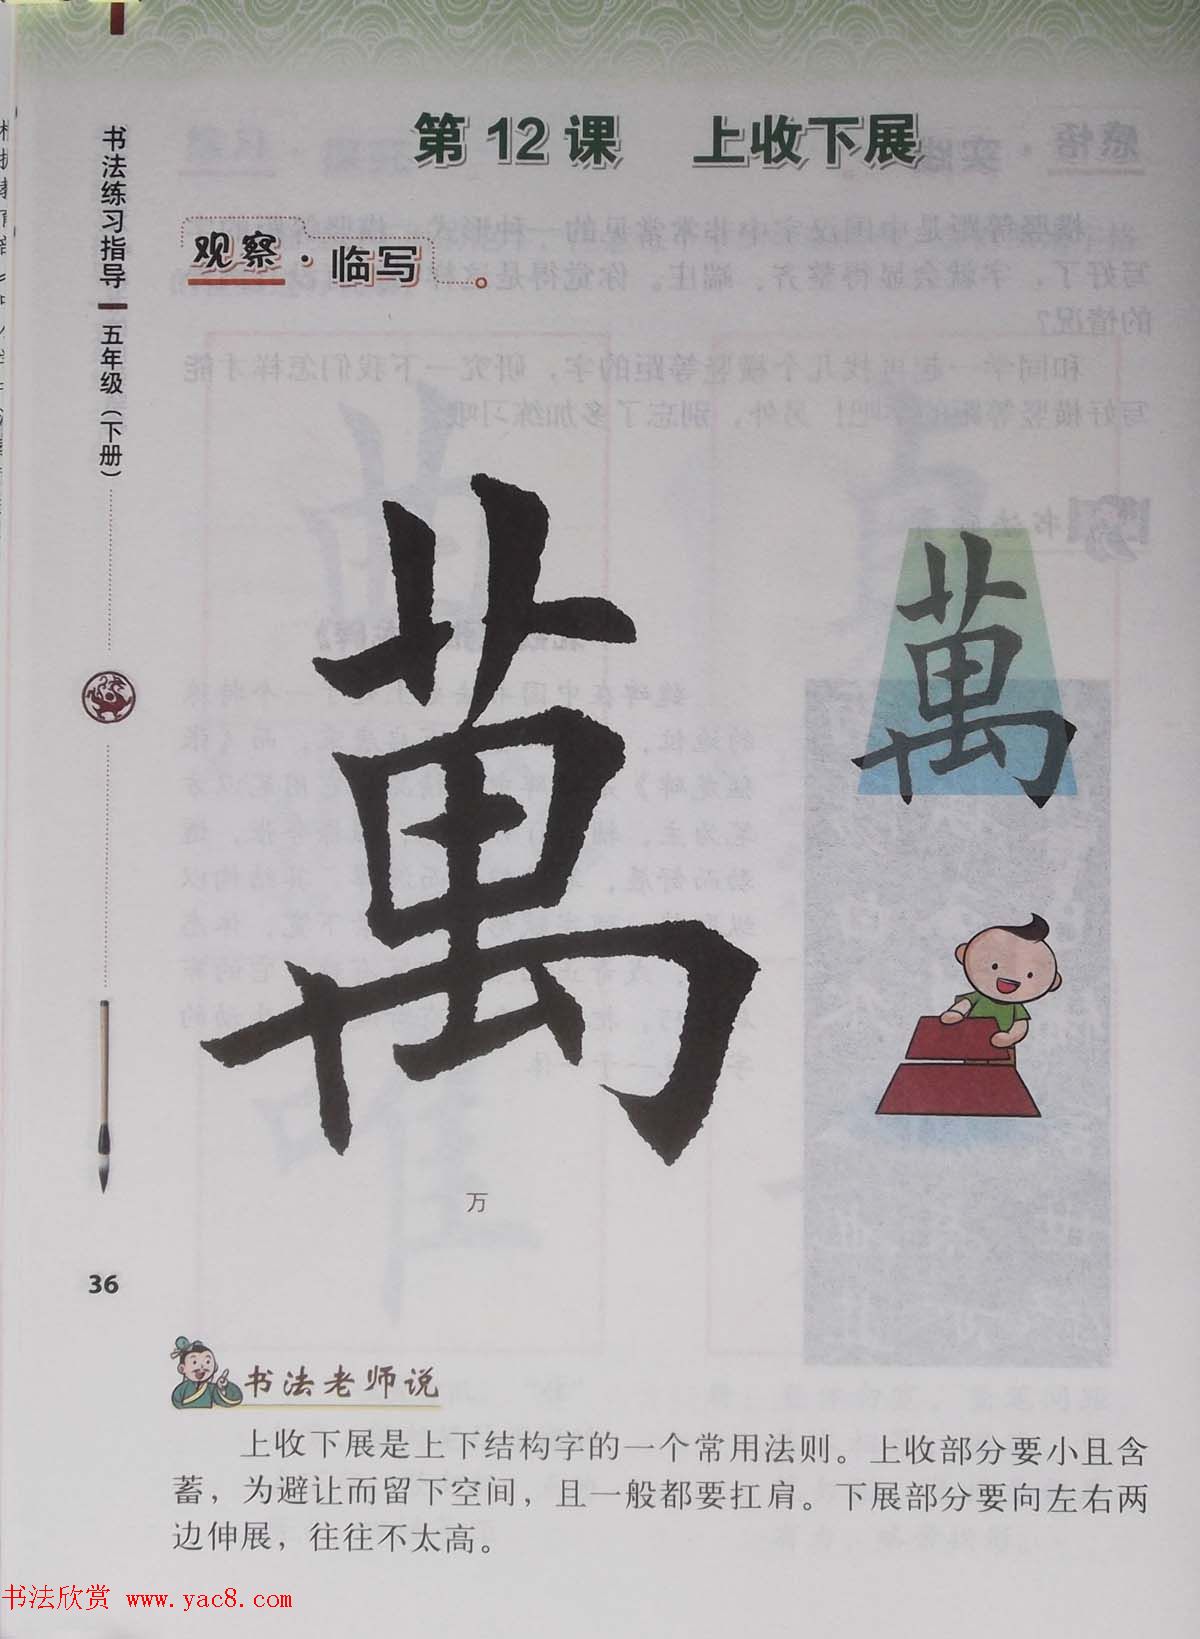 第 12 课 上收下展
书法练习指导
五年级（下册）
观察·临写
萬
萬
万
36
书法老师说
上收下展是上下结构字的一个常用法则。上收部分要小且含
蓄，为避让而留下空间，且一般都要扛肩。下展部分要向左右两
边伸展，往往不太高。
书法欣赏 www.yac8.com